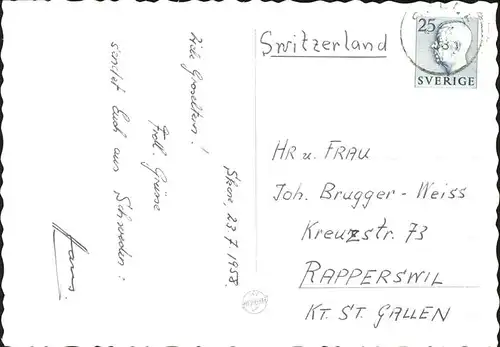 Skene, 23.7.1958.
Liebe Grosseltern!
Frdl. Grüsse
sendet Euch aus Schweden:
Hans.
Switzerland
25
SVERIGE
HR u. FRAU
Joh. Brugger-Weiss
Kreuzstr. 73
RAPPERSWIL
KT. ST. GALLEN